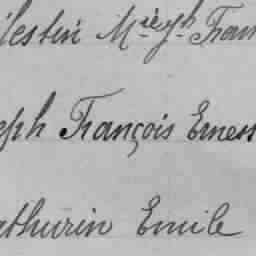 lestin Mie Jh Fran
eph François Ernes
athurin Emile